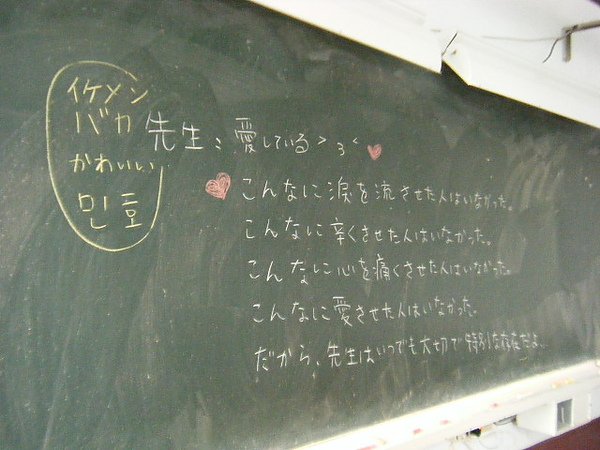 イケメン
バカ
かわいい
민호
先生:愛している>3<
こんなに涙を流させた人はいなかった。
こんなに辛くさせた人はいなかった。
こんなに心を痛くさせた人はいなかった。
こんなに愛させた人はいなかった。
だから、先生はいつでも大切で特別な存在だよ。